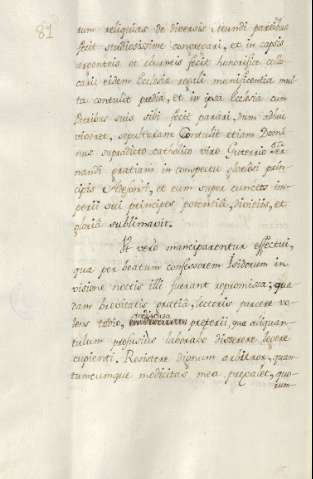 81
rum reliquias de diversis mundi partibus
fecit studiosissime congregari, et in capsis
argenteis et eburneis fecit honorifice collo-
cari: eidem Ecclesia regali munificentia mul-
ta contulit predia, et in ipsa Ecclesia cum
fratribus suis sibi fecit parari, dum adhuc
viveret, sepulturam. Contulit etiam Domi-
nus supradicto catholico viro Guterio Fer-
nandi gratiam in conspectu gloriosi prin-
cipis Adefonsi, et eum super cunctos im-
perii sui principes potentia, divitiis, et
gloria sublimavit.
Ut vero manciparentur effectui,
qua per beatum confessorem Isidorum in
visione noctis illi fuerant repromissa; qua-
dam brevitatis gratia, ceteris parcere vo-
lens tadio, preterii, qua aliquan-
tulum profusius laborabo disserere legere
cupienti. Recitare dignum arbitror, quan-
tumcumque modicitas mea prevalet, quo-
rum